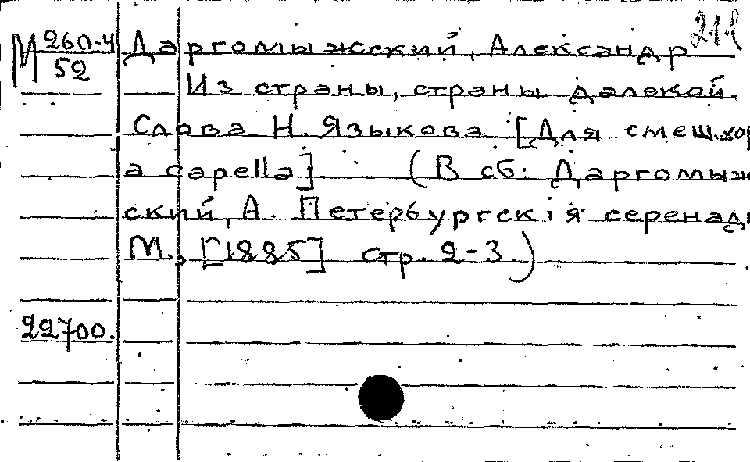 М 260-4
52
Даргомыжский, Александр
Из страны, страны далекой.
Слова Н. Языкова [Для смеш.хор
a capella] (В сб: Даргомыж
ский, А. Петербургскiя серенады
М., [1885] стр. 2-3.)
22700.